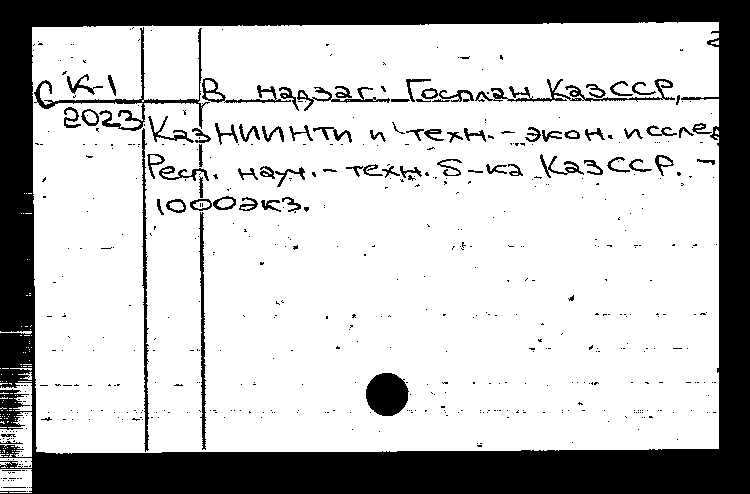 С К-1 В надзаг.: Госплан КазССР,
2023 КазНИИНТИ и техн.-экон. исслед
Респ. науч.-техн. б-ка КазССР. -
1000экз.